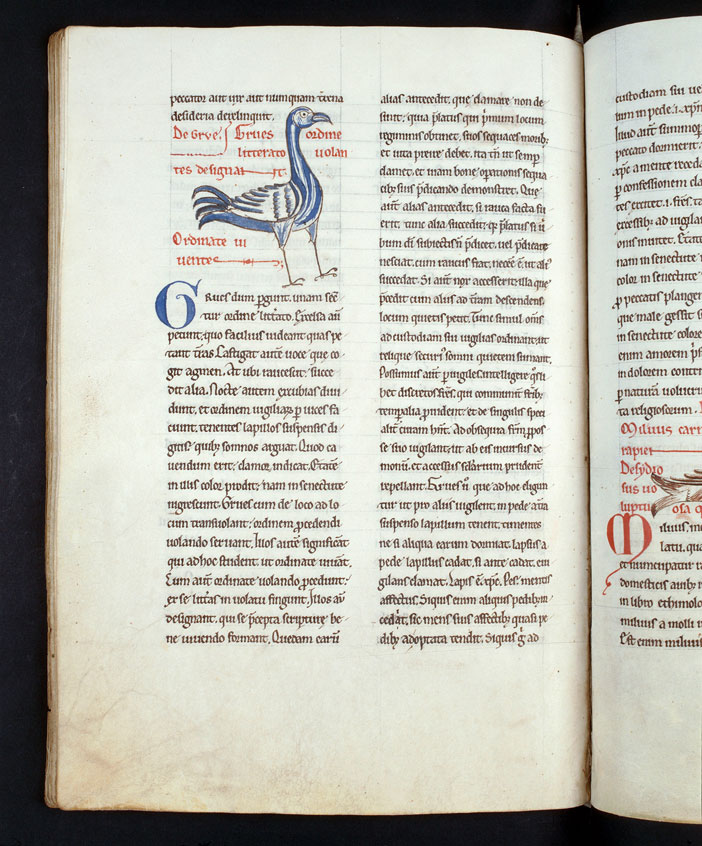 peccator aut vix aut numquam t̃rena
desideria derelinquit.
De Grve. Grues ordine
litterato uolan
tes designat
Ordinate ui
uente
GRues dum ꝑgunt, unam seq̃
tur ordine litt̾ato. Excelsa aũ
petunt, quo facilius uideant quas pe
tant t̾ras. Castigat autẽ uoce que co
git agmen. At ubi raucescit, succe
dit alia. Nocte autem excubias diui
dunt, et ordinem uigiliaꝝ ꝑ uices fa
ciunt, tenentes lapillos suspensis di
gitis, quibꝫ somnos arguat. Quod ca
uendum erit, clamor indicat. Etatẽ
in illis color prodit, nam in senectute
nigrescunt. Grues cum de loco ad lo
cum transuolant, ordinem ꝓcedendi
uolando seruant. Illos autẽ significãt
qui ad hoc student, ut ordinate uiuãt.
Cum autẽ ordinate uolando ꝓcedunt,
ex se litt̾as in uolatu fingunt. Illos aũ
designant, qui se p̃cepta scripture be
ne uiuendo formant. Quedam earũ
alias antecedit, que clamare non de
sinit, quia p̃latus qui p̾mum locum
regiminis obtinet, suos sequaces moribꝫ
et uita preire debet, ita tñ ut semꝑ
clamet, et uiam bone oꝑationis sequa
cibꝫ suis p̃dicando demonstret. Que
aũt alias antecedit, si rauca facta fu
erit, tunc alia succedit, quia p̃latus si u̾
bum dĩ subiectis ñ p̃dicet, uel p̃dicare
nesciat, cum raucus fiat, necesse ẽ, ut ali⁹
succedat. Si aũt nox accesserit, illa que
p̃cedit cum aliis ad t̾ram descendens,
locum quietis petit. Tunc simul om̃s
ad custodiam sui uigilias ordinant, ut
relique securi⁹ somni quietem sumant.
Possumus aũt ꝑ uigiles intelligere q̊sli
bet discretos fr̃es, qui communit̾ fr̃ibꝫ
temporalia prouident, et de singulis speci
alit̾ curam hñt. Ad obsequia frũm pos
se suo uigilant, ut ab eis incursus de
monũ, et accessus sc̃larium prudent̾
repellant. Grues ũ que ad hoc eligun
tur ut pro aliis uigilent, in pede a t̾ra
suspenso lapillum tenent, timentes
ne si aliqua earum dormiat, lapsus a
pede lapillus cadat, si aute᷒ cadat, eui
gilans clamat. Lapis ẽ xp̃c. Pes, mentis
affectus. Siquis enim aliquis pedibꝫ in
cedat, sic mens suis affectibꝫ quasi pe
dibꝫ ad optata tendit. Siquis g̾ ad
custodiam sui ue
tum in pede, i. xp̃m
peccato dormierit
xp̃c a mente receda
ꝑ confessionem cla
tes excitet, i. fr̃es
excessibꝫ ad uigilan
nam in senectute
color in senectute
ꝑ peccatis plangen
que male gessit
in senectute colore
enim amorem
in dolorem conter
ꝑ naturã uoluerũ
ta religiosorum.
Miluus carn
rapier
Desydio
sus uo
luptu
osa q
Miluus, mo
latu, qua
et nuncupatur
domesticis auibꝫ
in libro ethimolo
miluus a molli
Est enim miluus